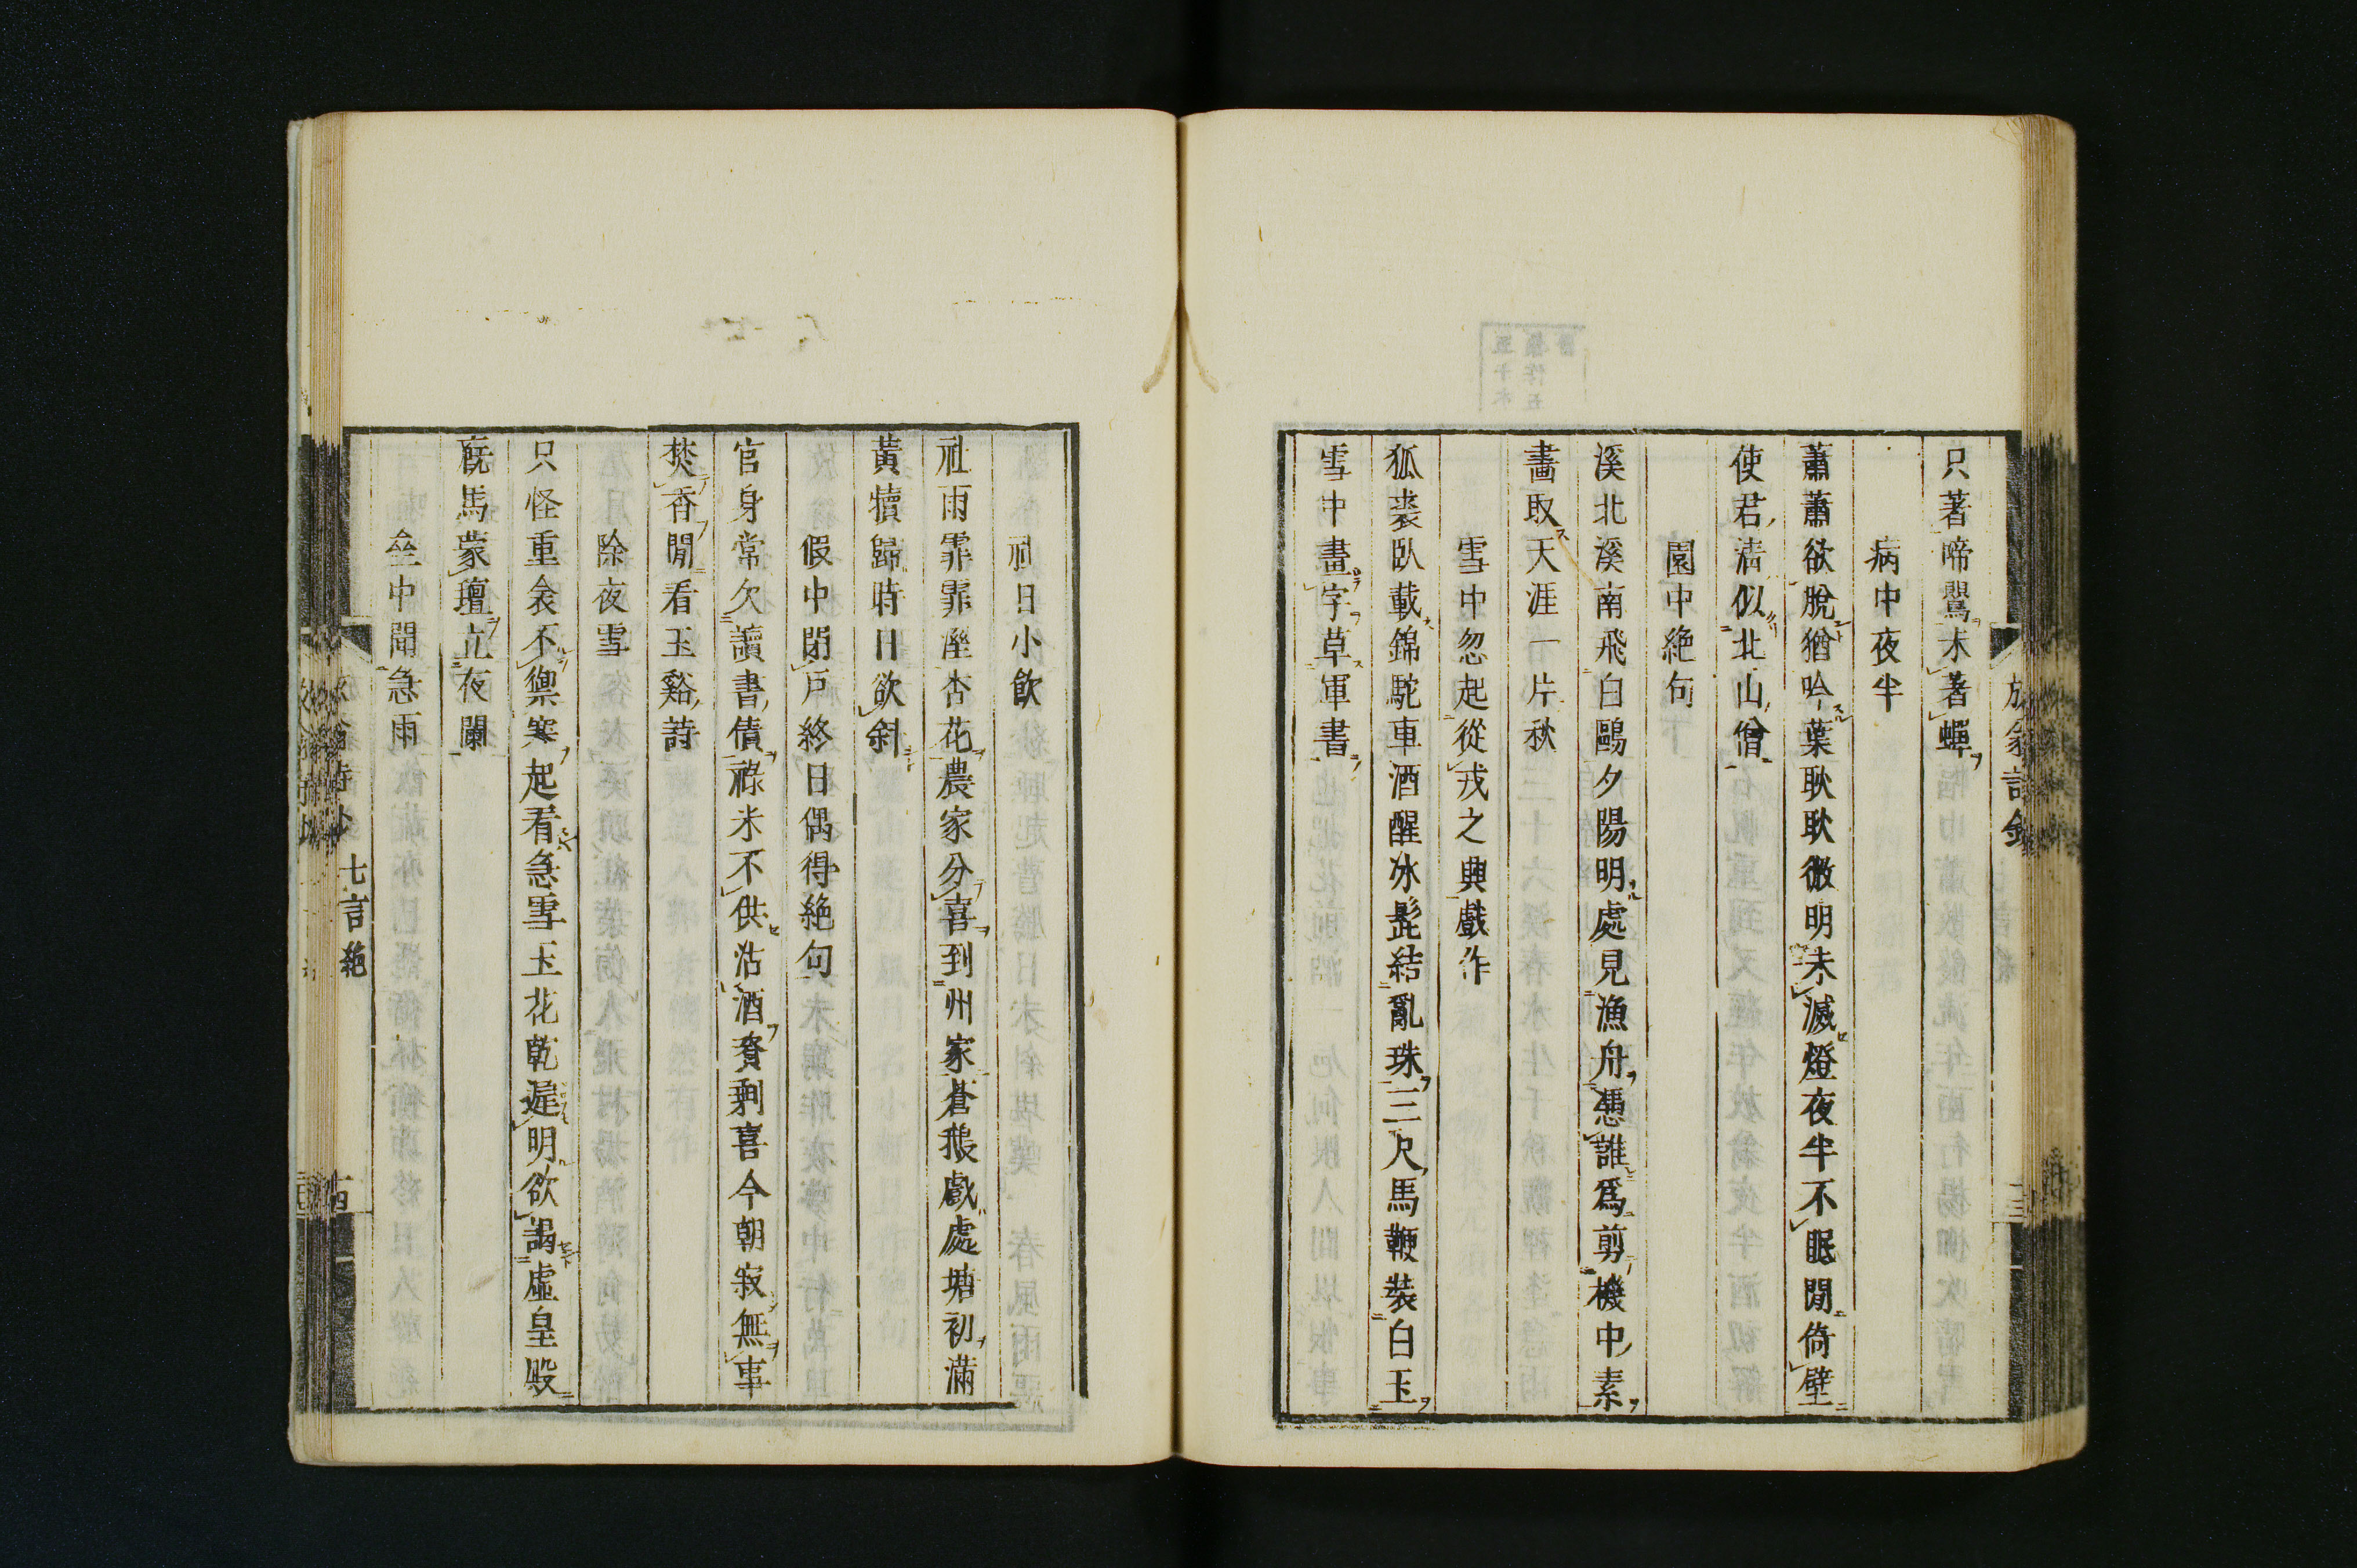 只著啼鶯未著蟬
病中夜半
蕭蕭欲脫猶吟葉耿耿微明未滅燈夜半不眠閒倚壁
使君清似北山僧
園中絶句
溪北溪南飛白鷗夕陽明處見漁舟憑誰爲剪機中素
畫取天涯一片秋
雪中忽起從戎之興戲作
狐裘臥載錦駝車酒醒氷髭結亂珠三尺馬鞭裝白玉
雪中畫字草軍書
社日小飲
社雨霏霏溼杏花農家分喜到州家蒼鵝戲處塘初滿
黃犢歸時日欲斜
假中閉戶終日偶得絶句
官身常欠讀書債祿米不供沽酒資剩喜今朝寂無事
焚香閒看玉谿詩
除夜雪
只怪重衾不禦寒起看急雪玉花乾遲明欲謁虛皇殿
廐馬蒙氊立夜闌
壘中聞急雨
七言絶